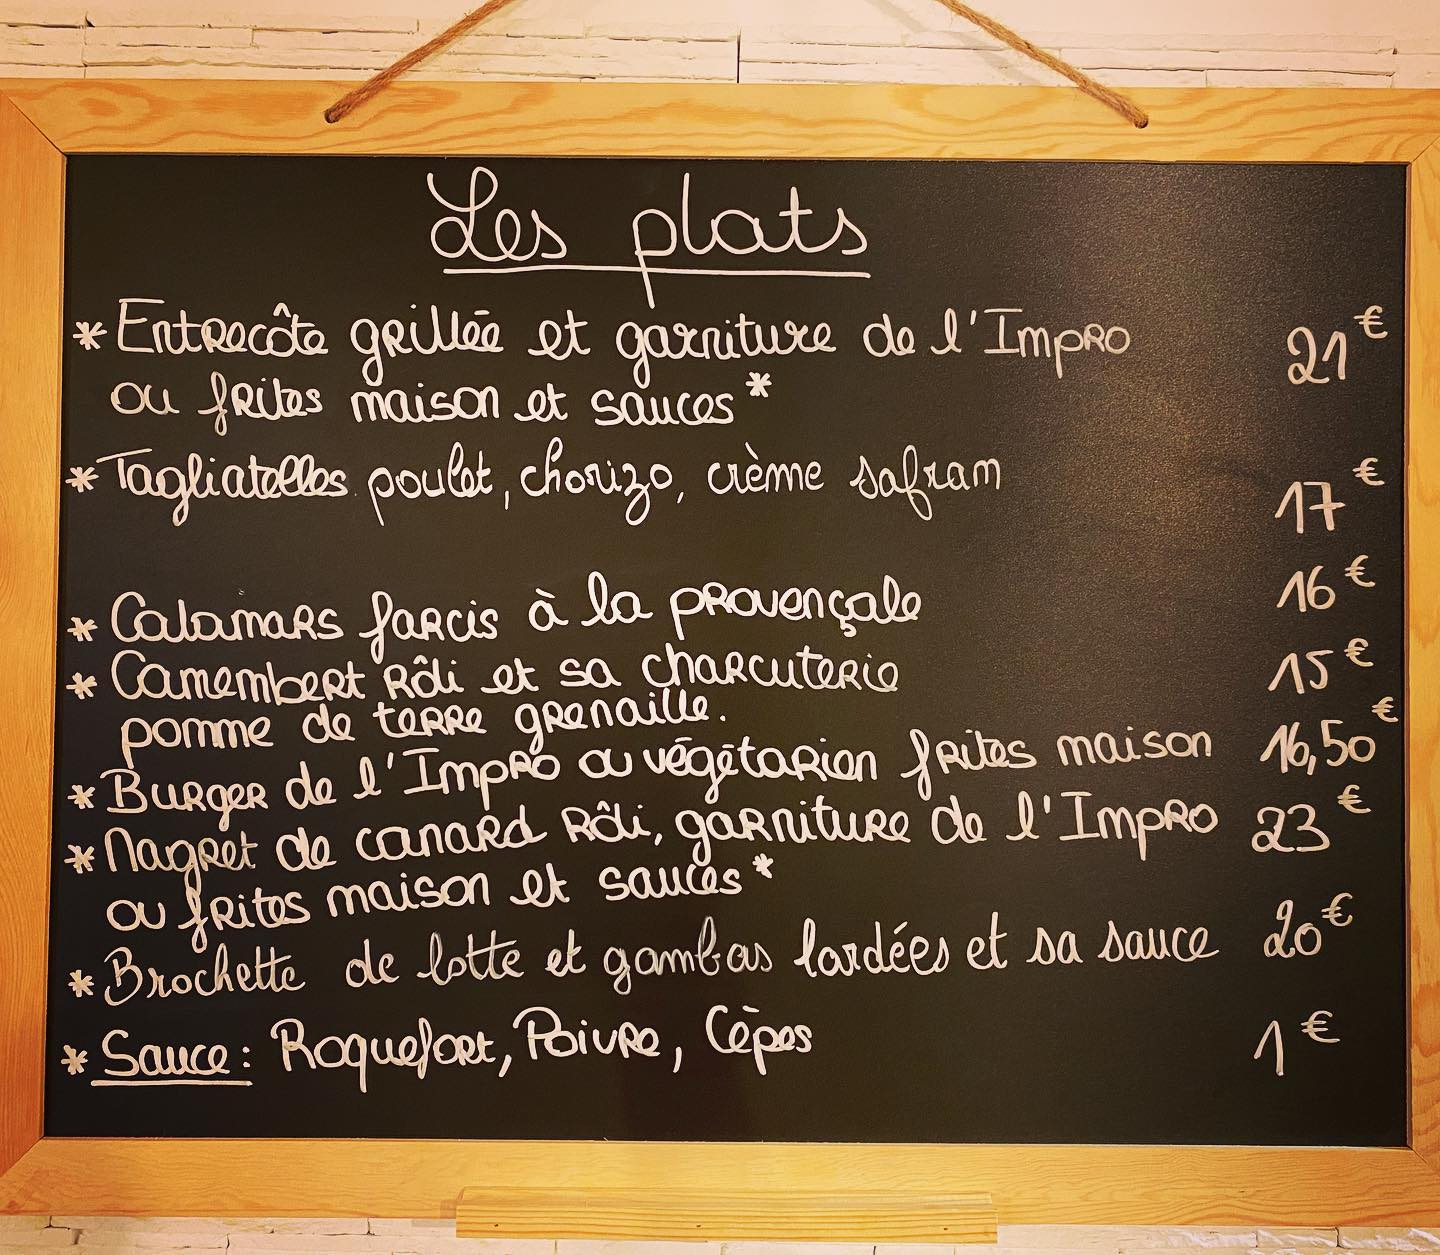 Les plats
* Entrecôte grillée et garniture de l'Impro 21€
ou frites maison et sauces*
* Tagliatelles poulet, chorizo, crème safram 17€
* Calamars farcis à la provençale 16€
* Camembert Rôti et sa charcuterie 15€
pomme de terre grenaille.
* Burger de l'Impro ou végétarien frites maison 16,50€
* Magret de canard Rôti, garniture de l'Impro 23€
ou frites maison et sauces*
* Brochette de lotte et gambas lardées et sa sauce 20€
* Sauce: Roquefort, Poivre, Cèpes 1€